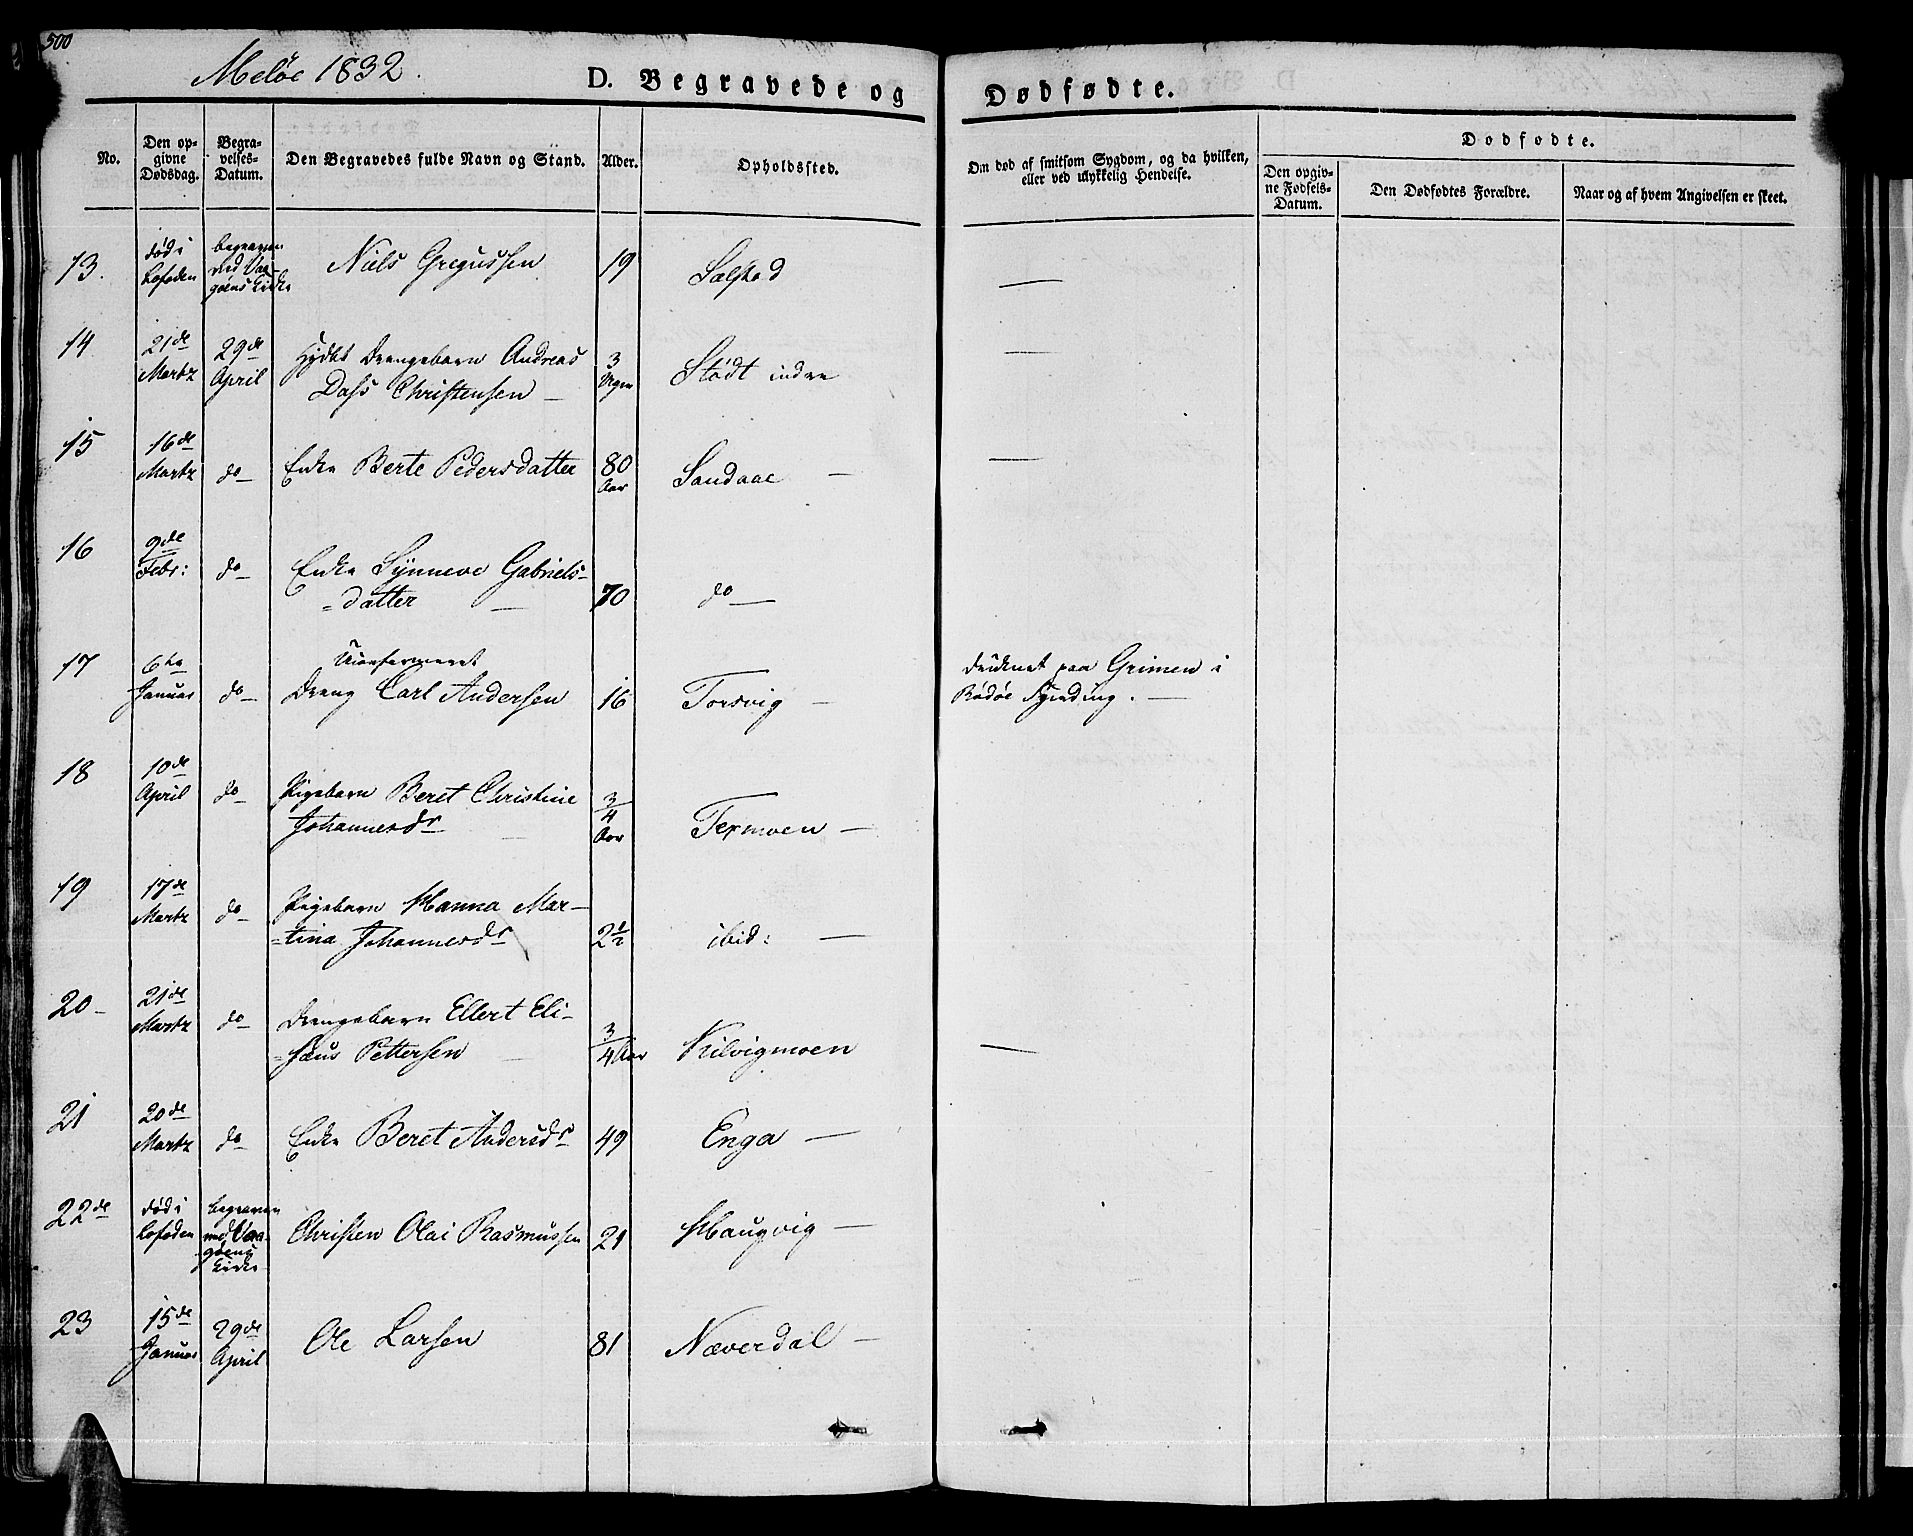 500
Meløe 1832.
D. Begravede og Dødfødte.
No.
Den op-
givne
Dødsdag.
Begra-
velses-
Datum.
Den Begravedes fulde Navn og Stand.
Alder.
Opholdssted.
Om død af smitsom Sygdom, og da hvilken,
eller ved ulykkelig Hendelse.
Dødfødte.
Den opgiv-
ne Fødsels-
Datum.
Den Dødfødtes Forældre.
Naar og af hvem Angivelsen er skeet.
13. død i Lofoden begraven ved Vaa-gøens Kirke Niels Gregussen 19 Selstad —
14 21de Martz 29de April Drengebarn Andreas
Dass Christensen — 3 Uger Stødt indre —
15 16de Martz do — Enke Berte Pedersdatter 80 Aar Sandaae — —
16 9de Febr: do — Enke Synneve Gabriels-
=datter — 70 do —
17 6te Januar do — Uconfirmeret
Dreng Carl Andersen 16 Torsvig — druknet paa Grimen i
Rødøe Fjerding. —
18 10de April do — Pigebarn Beret Christine
Johannesdr — 3/4 Aar Termoen —
19 17de Martz do — Pigebarn Hanna Mar-
=tina Johannesdr 2 1/2 ibid: —
20 – 21de Martz do — Drengebarn Ellert Eli-
=sæus Pettersen — 3/4 Aar Kilvigmoen —
21 20de Martz do — Enke Beret Andersdr 49 Enga —
22de død i Lofoden begraven ved Vaa-gøens Kirke Christen Olai Rasmussen 21 Haugvig —
23 15de Januar 29de April Ole Larsen 81 Næverdal —